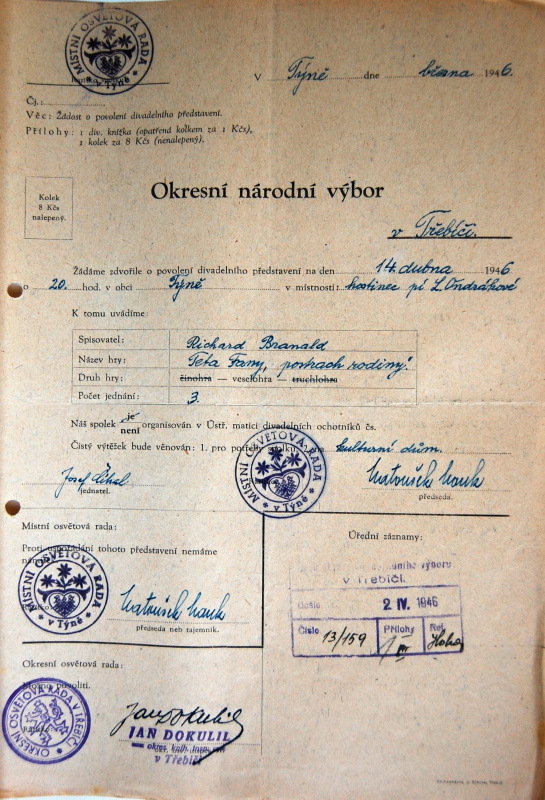 MÍSTNÍ OSVĚTOVÁ RADA
* v Týně *
V Týně dne března 1946.
Čj.:
Věc: Žádost o povolení divadelního představení.
Přílohy: 1 div. knížka (opatřená kolkem za 1 Kčs),
1 kolek za 8 Kčs (nenalepený).
Kolek
8 Kčs
nalepený.
Okresní národní výbor
v Třebíči.
Žádáme zdvořile o povolení divadelního představení na den 14. dubna 1946
o 20. hod. v obci Týně v místnosti: hostinec pí L. Ondrákové
K tomu uvádíme:
Spisovatel: Richard Branald
Název hry: Teta Fany, postrach rodiny!
Druh hry: činohra — veselohra — truchlohra
Počet jednání: 3.
Náš spolek je
není organisován v Ústř. matici divadelních ochotníků čs.
Čistý výtěžek bude věnován: 1. pro potřeby spolku, kulturní dům.
MÍSTNÍ OSVĚTOVÁ RADA
* v Týně *
Josef
jednatel.
Matoušek
předseda.
Místní osvětová rada:
Proti uspořádání tohoto představení nemáme
MÍSTNÍ OSVĚTOVÁ RADA
* v Týně *
Matoušek
předseda neb tajemník.
Úřední záznamy:
v Třebíči.
Došlo 2 IV. 1946
Číslo 13/159 Přílohy Ref.
Okresní osvětová rada:
Možno povoliti.
OKRESNÍ OSVĚTOVÁ RADA V TŘEBÍČI
Jan Dokulil
JAN DOKULIL
okres. knih. insp.
v Třebíči